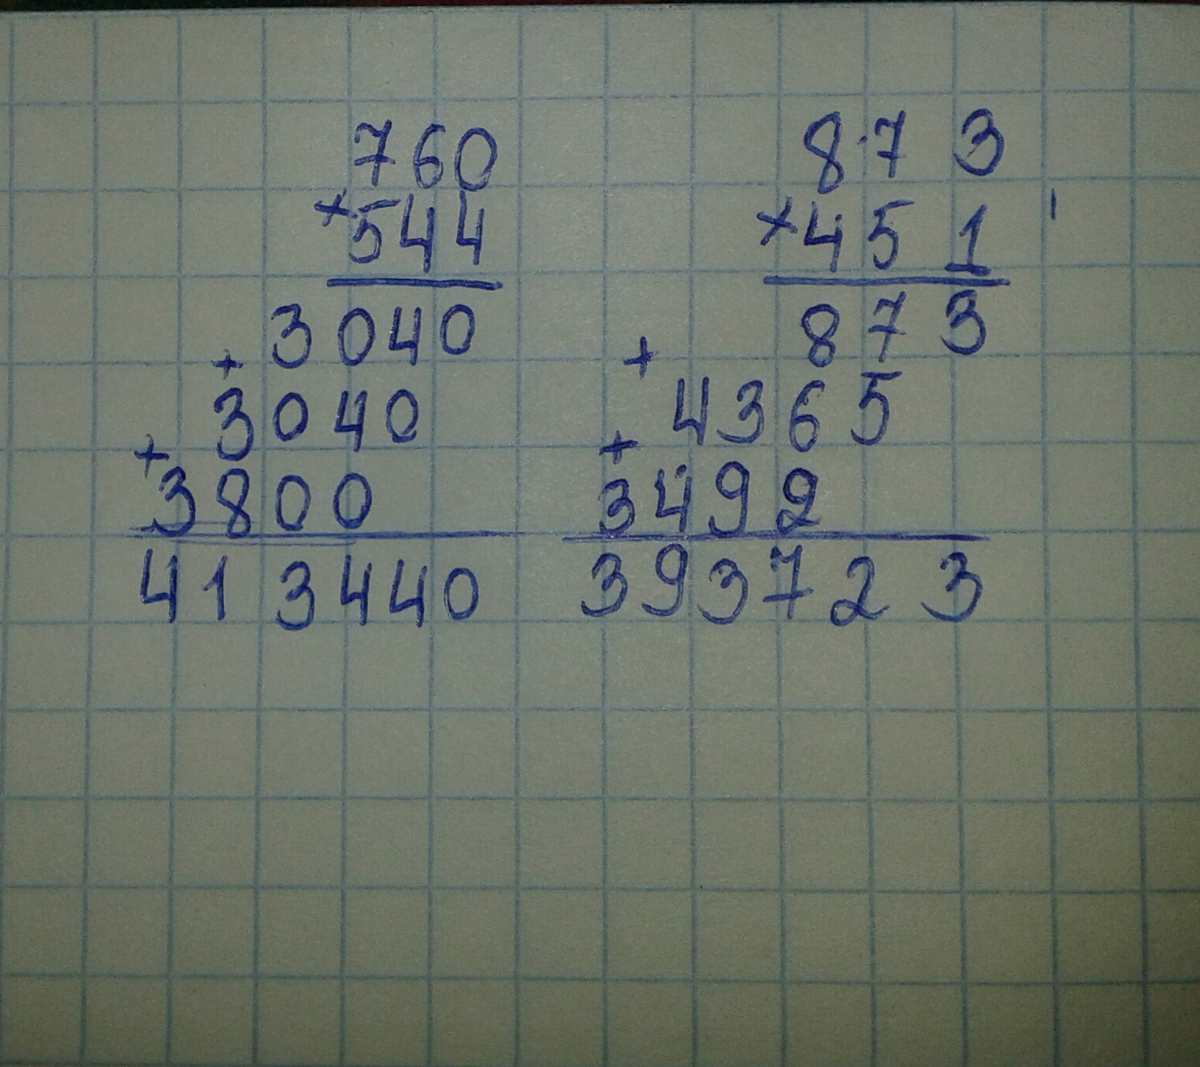 760
×544
3040
+
3040
+
3800
413440
873
×451
873
+
4365
+
3492
393723